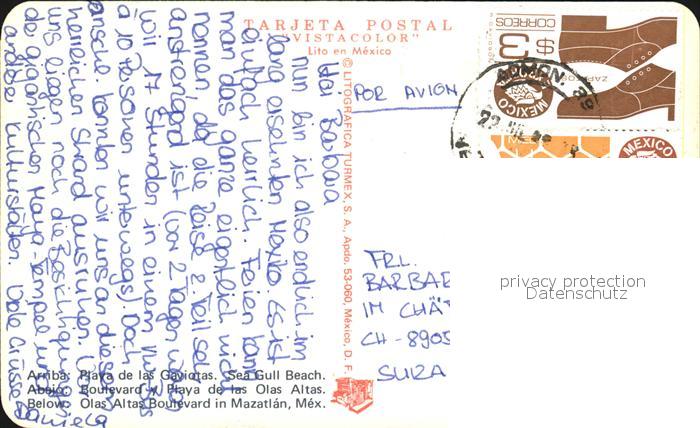 TARJETA POSTAL
"VISTACOLOR"
Lito en México
© LITOGRAFICA TURMEX, S. A., Apdo. 53-060, México, D. F.
CORREOS
$3
MEXICO
MEXICO
POR AVION
Hai Barbara
nun bin ich also endlich im
lang ersehnten Mexiko. Es ist
einfach herrlich. Ferien kann
man das ganze eigentlich nicht
nennen, da die Reise z. Teil sehr
anstrengend ist (vor 2 Tagen waren
wir 17 Stunden in einem Minibus
à 10 Personen unterwegs). Doch
konnten wir uns an diesem
herrlichen Strand ausruhen. Vor
uns liegen noch die Besichtigungen
de gigantischen Maya-Tempel und
andere Kulturstätten. Viele Grüsse
Daniela
FRL.
BARBAR
IM CHÄ
CH - 8905
SUIZA
privacy protection
Datenschutz
Arriba: Playa de las Gaviotas. Sea Gull Beach.
Abajo: Boulevard y Playa de las Olas Altas.
Below: Olas Altas Boulevard in Mazatlán, Méx.